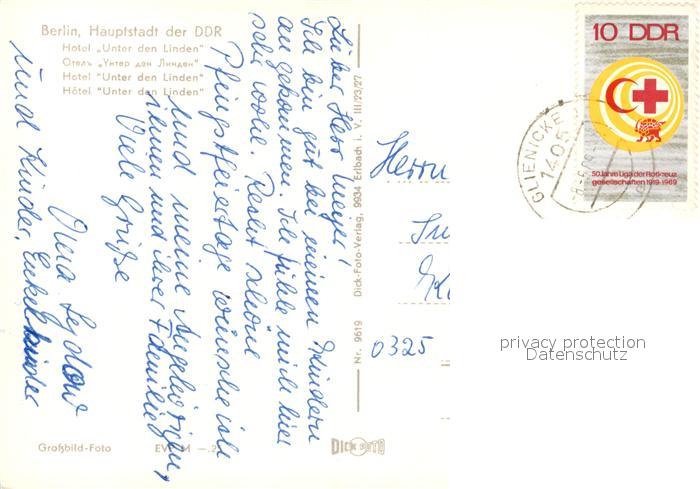 Berlin, Hauptstadt der DDR
Hotel „Unter den Linden“
Отель „Унтер ден Линден“
Hotel “Unter den Linden”
Hôtel “Unter den Linden”
Lieber Herr Meyer!
Ich bin gut bei meinen Kindern
angekommen. Ich fühle mich hier
sehr wohl. Recht schöne
Pfingstfeiertage wünsche ich
und meine Angehörigen,
ihnen und ihrer Familie
Viele Grüße
Oma
und Kinder, Enkelkinder
Großbild-Foto
EVP M —.2
Nr. 9619 Dick-Foto-Verlag, 9934 Erlbach i. V. III/23/27
DICK FOTO
Herrn
0325
10 DDR
50 Jahre Liga der Rotkreuz-
gesellschaften 1919-1969
GLIENICKE
privacy protection
Datenschutz